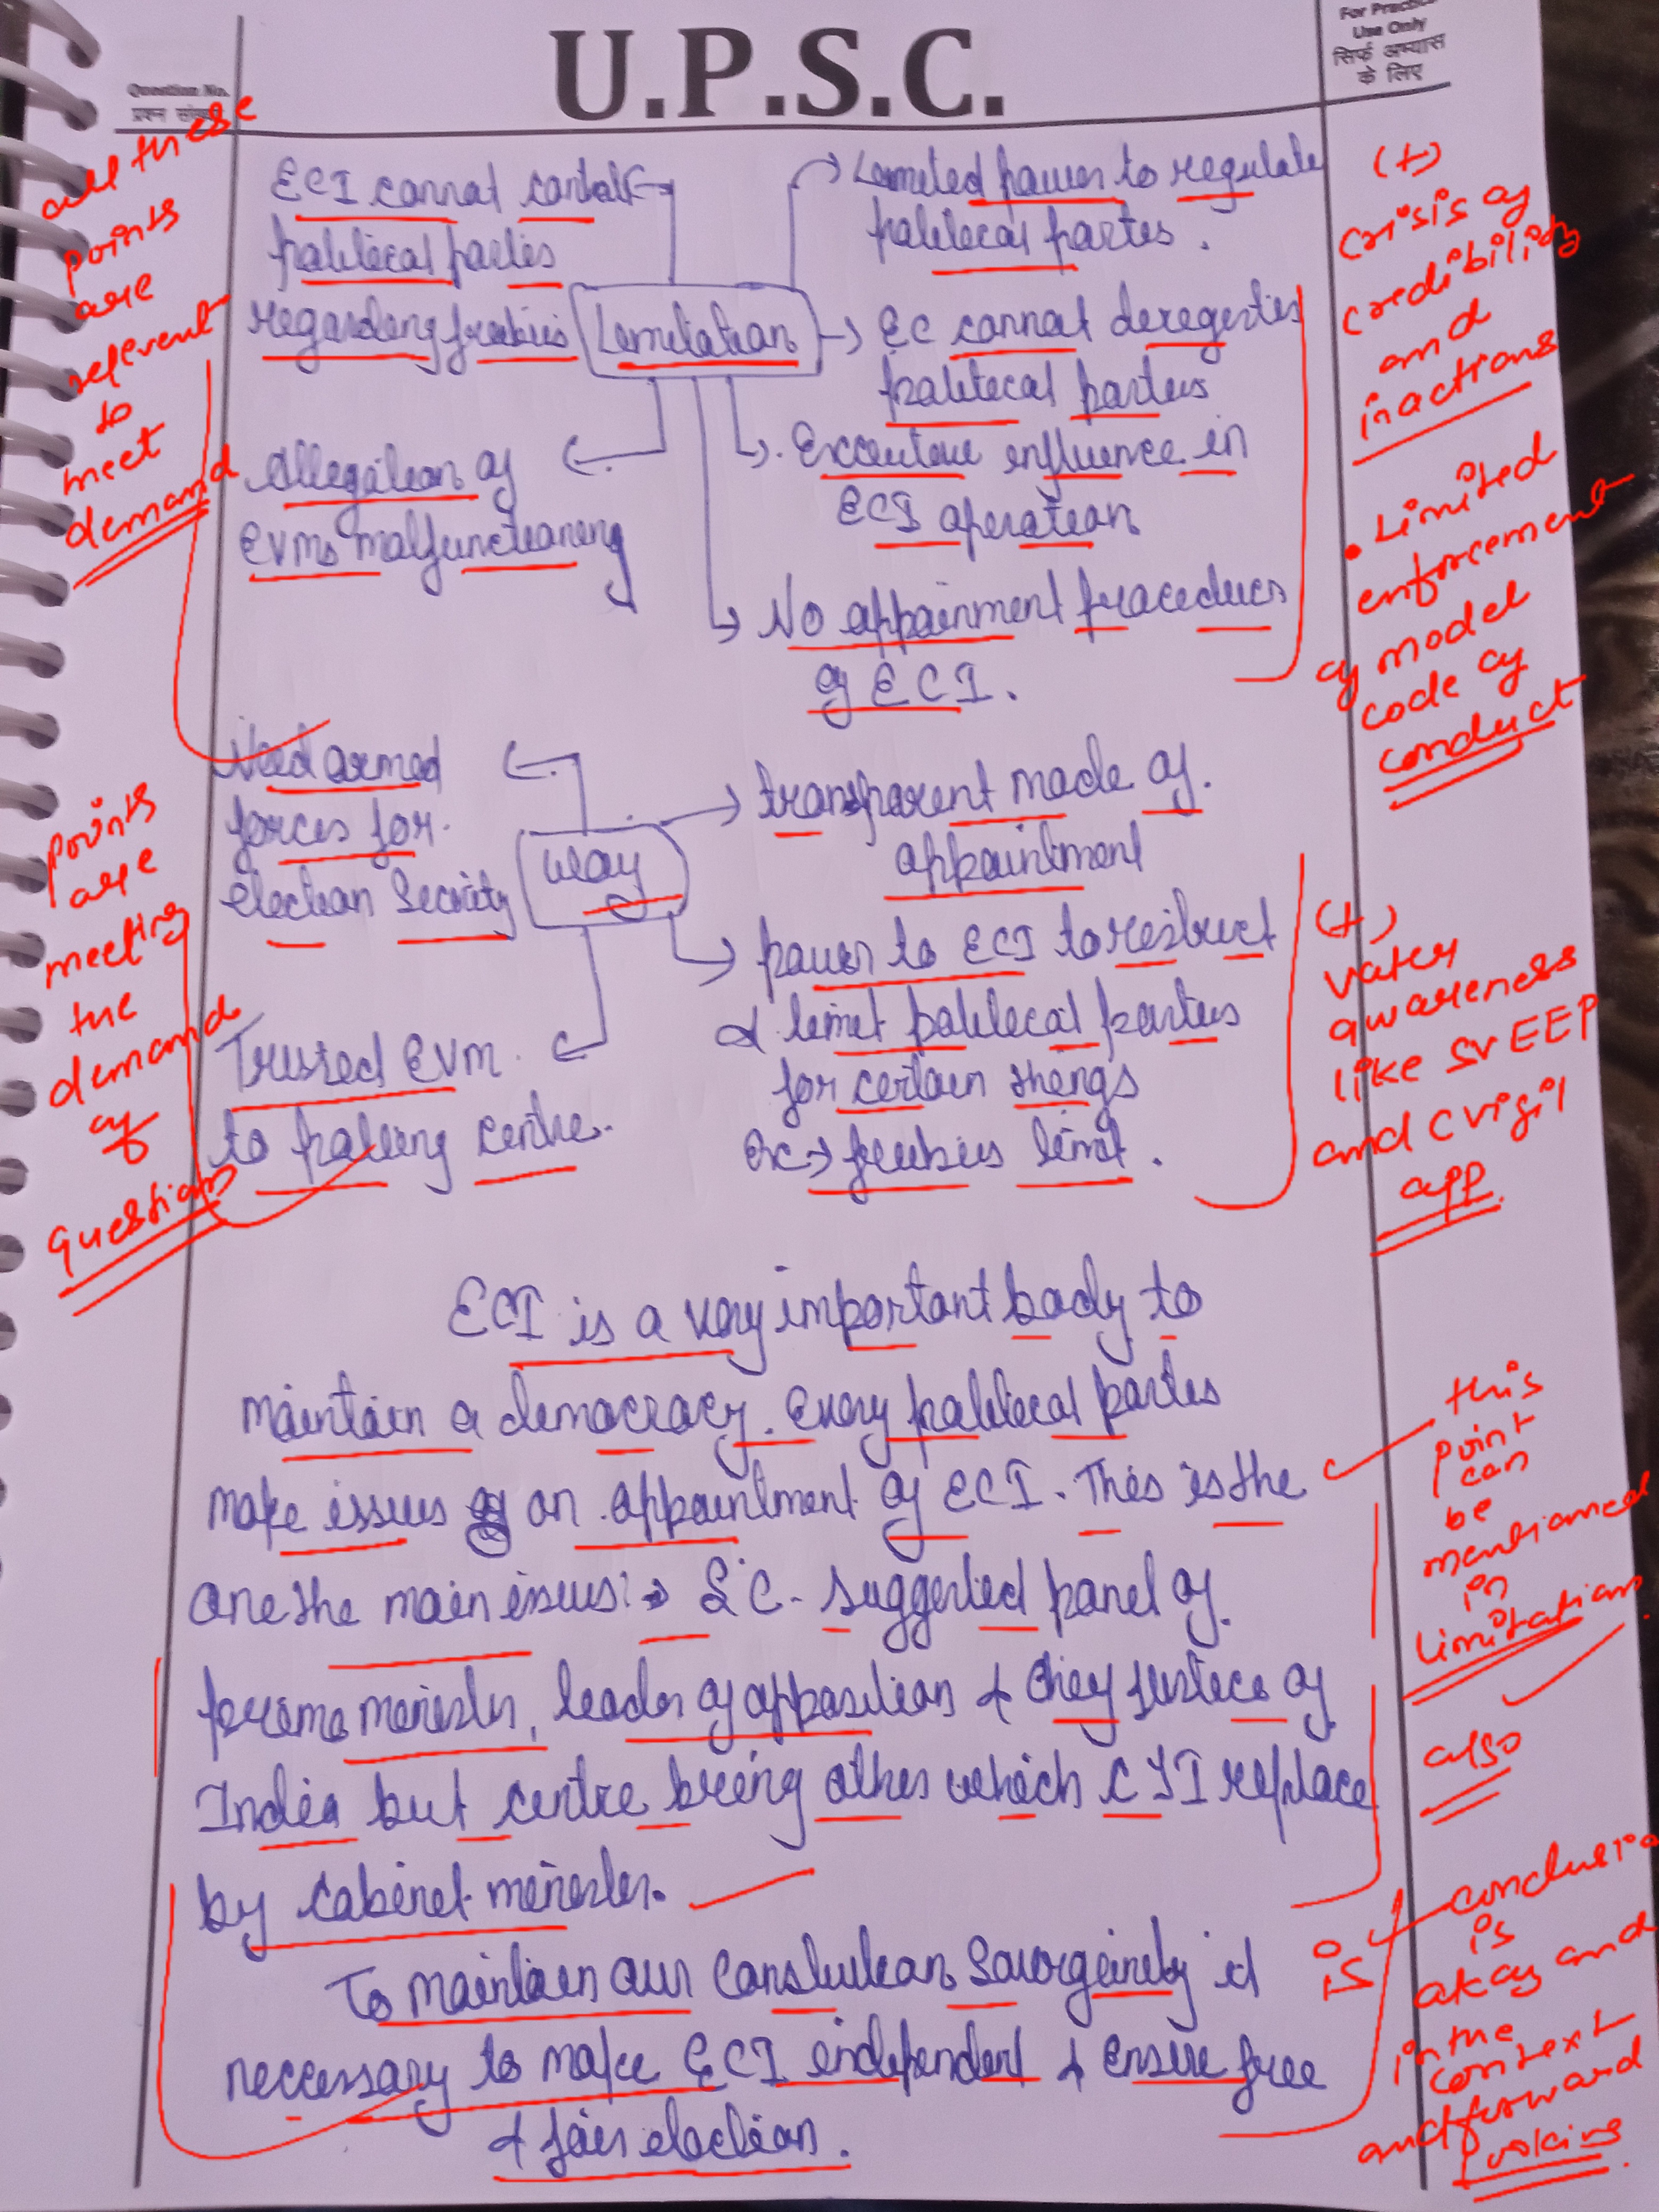 U.P.S.C.
For Practice
Use Only
सिर्फ अभ्यास
के लिए
Question No.
प्रश्न संख्या
all these
points
are
relevent
to
meet
demand
ECI cannot control
political parties
regarding freebies
Limitation
Limited power to regulate
political parties.
EC cannot deregister
political parties
Allegation of
EVMs malfunctioning
Executive influence in
ECI operation
No appoinment procedures
of ECI.
(+)
crisis of
credibility
and
inactions
• Limited
enforcement
of model
code of
conduct
Need armed
forces for
election Security
way
transparent mode of
appointment
power to ECI to restruct
& limit political parties
for certain things
Ex → freebies limit.
Trusted EVM
to polling centre.
points
are
meeting
the
demand
of
questions
(+)
voter
awareness
like SVEEP
and cvigil
app.
ECI is a very important body to
maintain a democracy. Every political parties
make issues on appointment of ECI. This is the
one the main issues: → SC suggested panel of
prime minister, leader of opposition & chief justice of
India but centre bring other which CJI replace
by cabinet minister.
this
point
can
be
mentioned
in
limitation
also
To maintain our Constitution it is
neccessary to make ECI independent & ensure free
& fair election.
conclusio
is
okay and
in the
context
and forward
looking